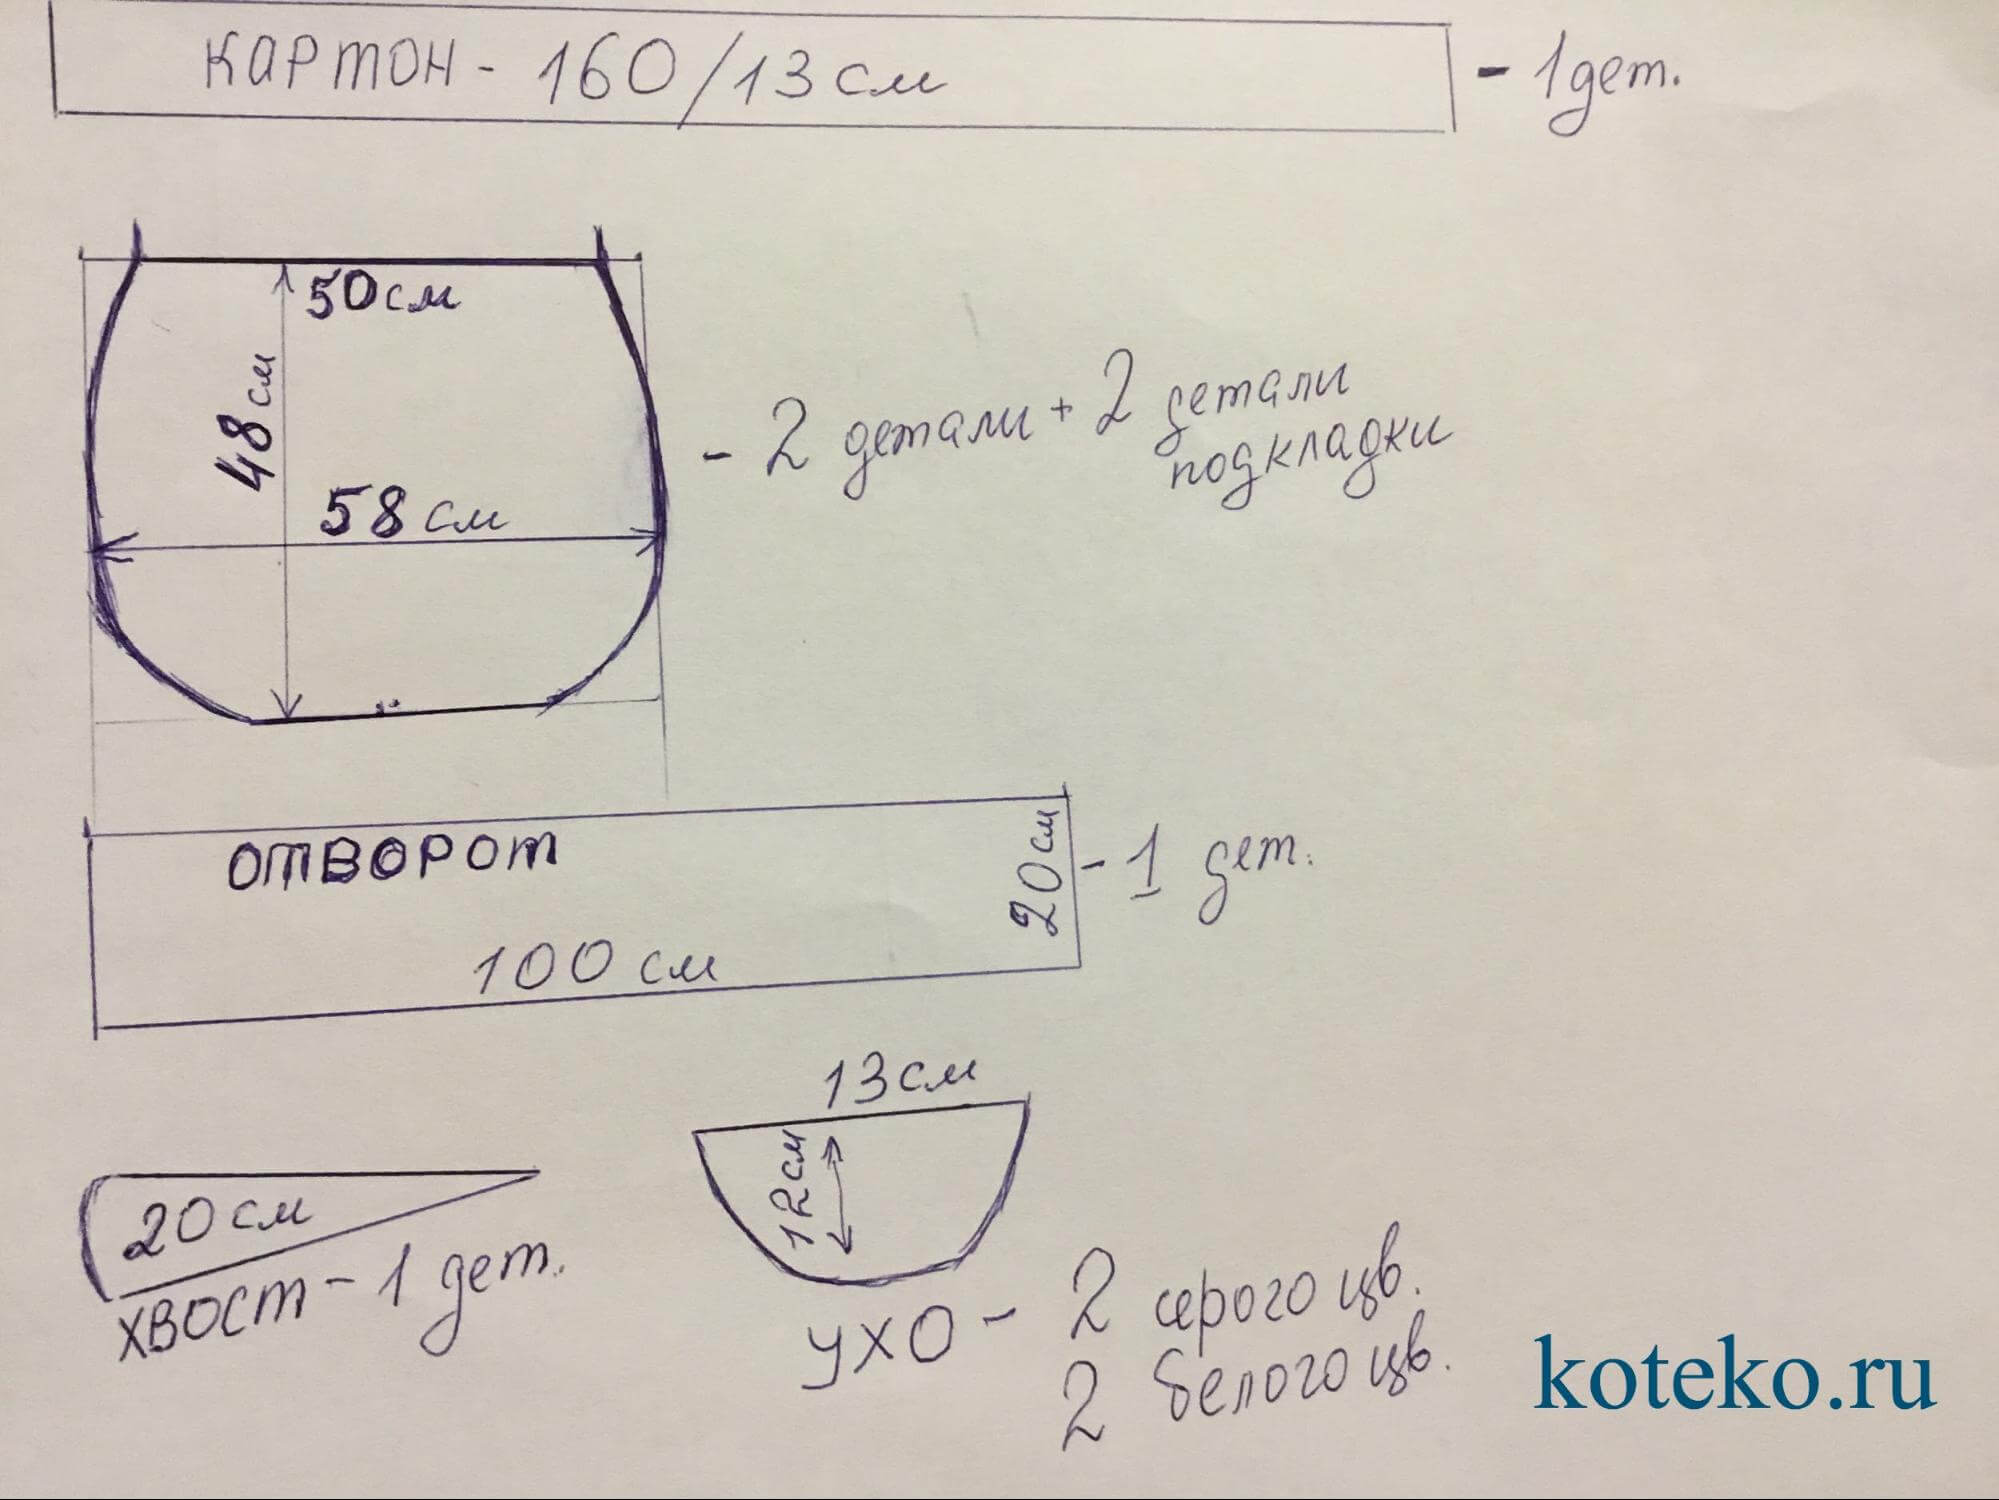 КАРТОН - 160/13 см - 1 дет.
50 см
48 см
58 см
- 2 детали + 2 детали
подкладки
ОТВОРОТ
20 см
- 1 дет.
100 см
13 см
12 см
20 см
ХВОСТ - 1 дет.
УХО - 2 серого цв.
2 белого цв.
koteko.ru